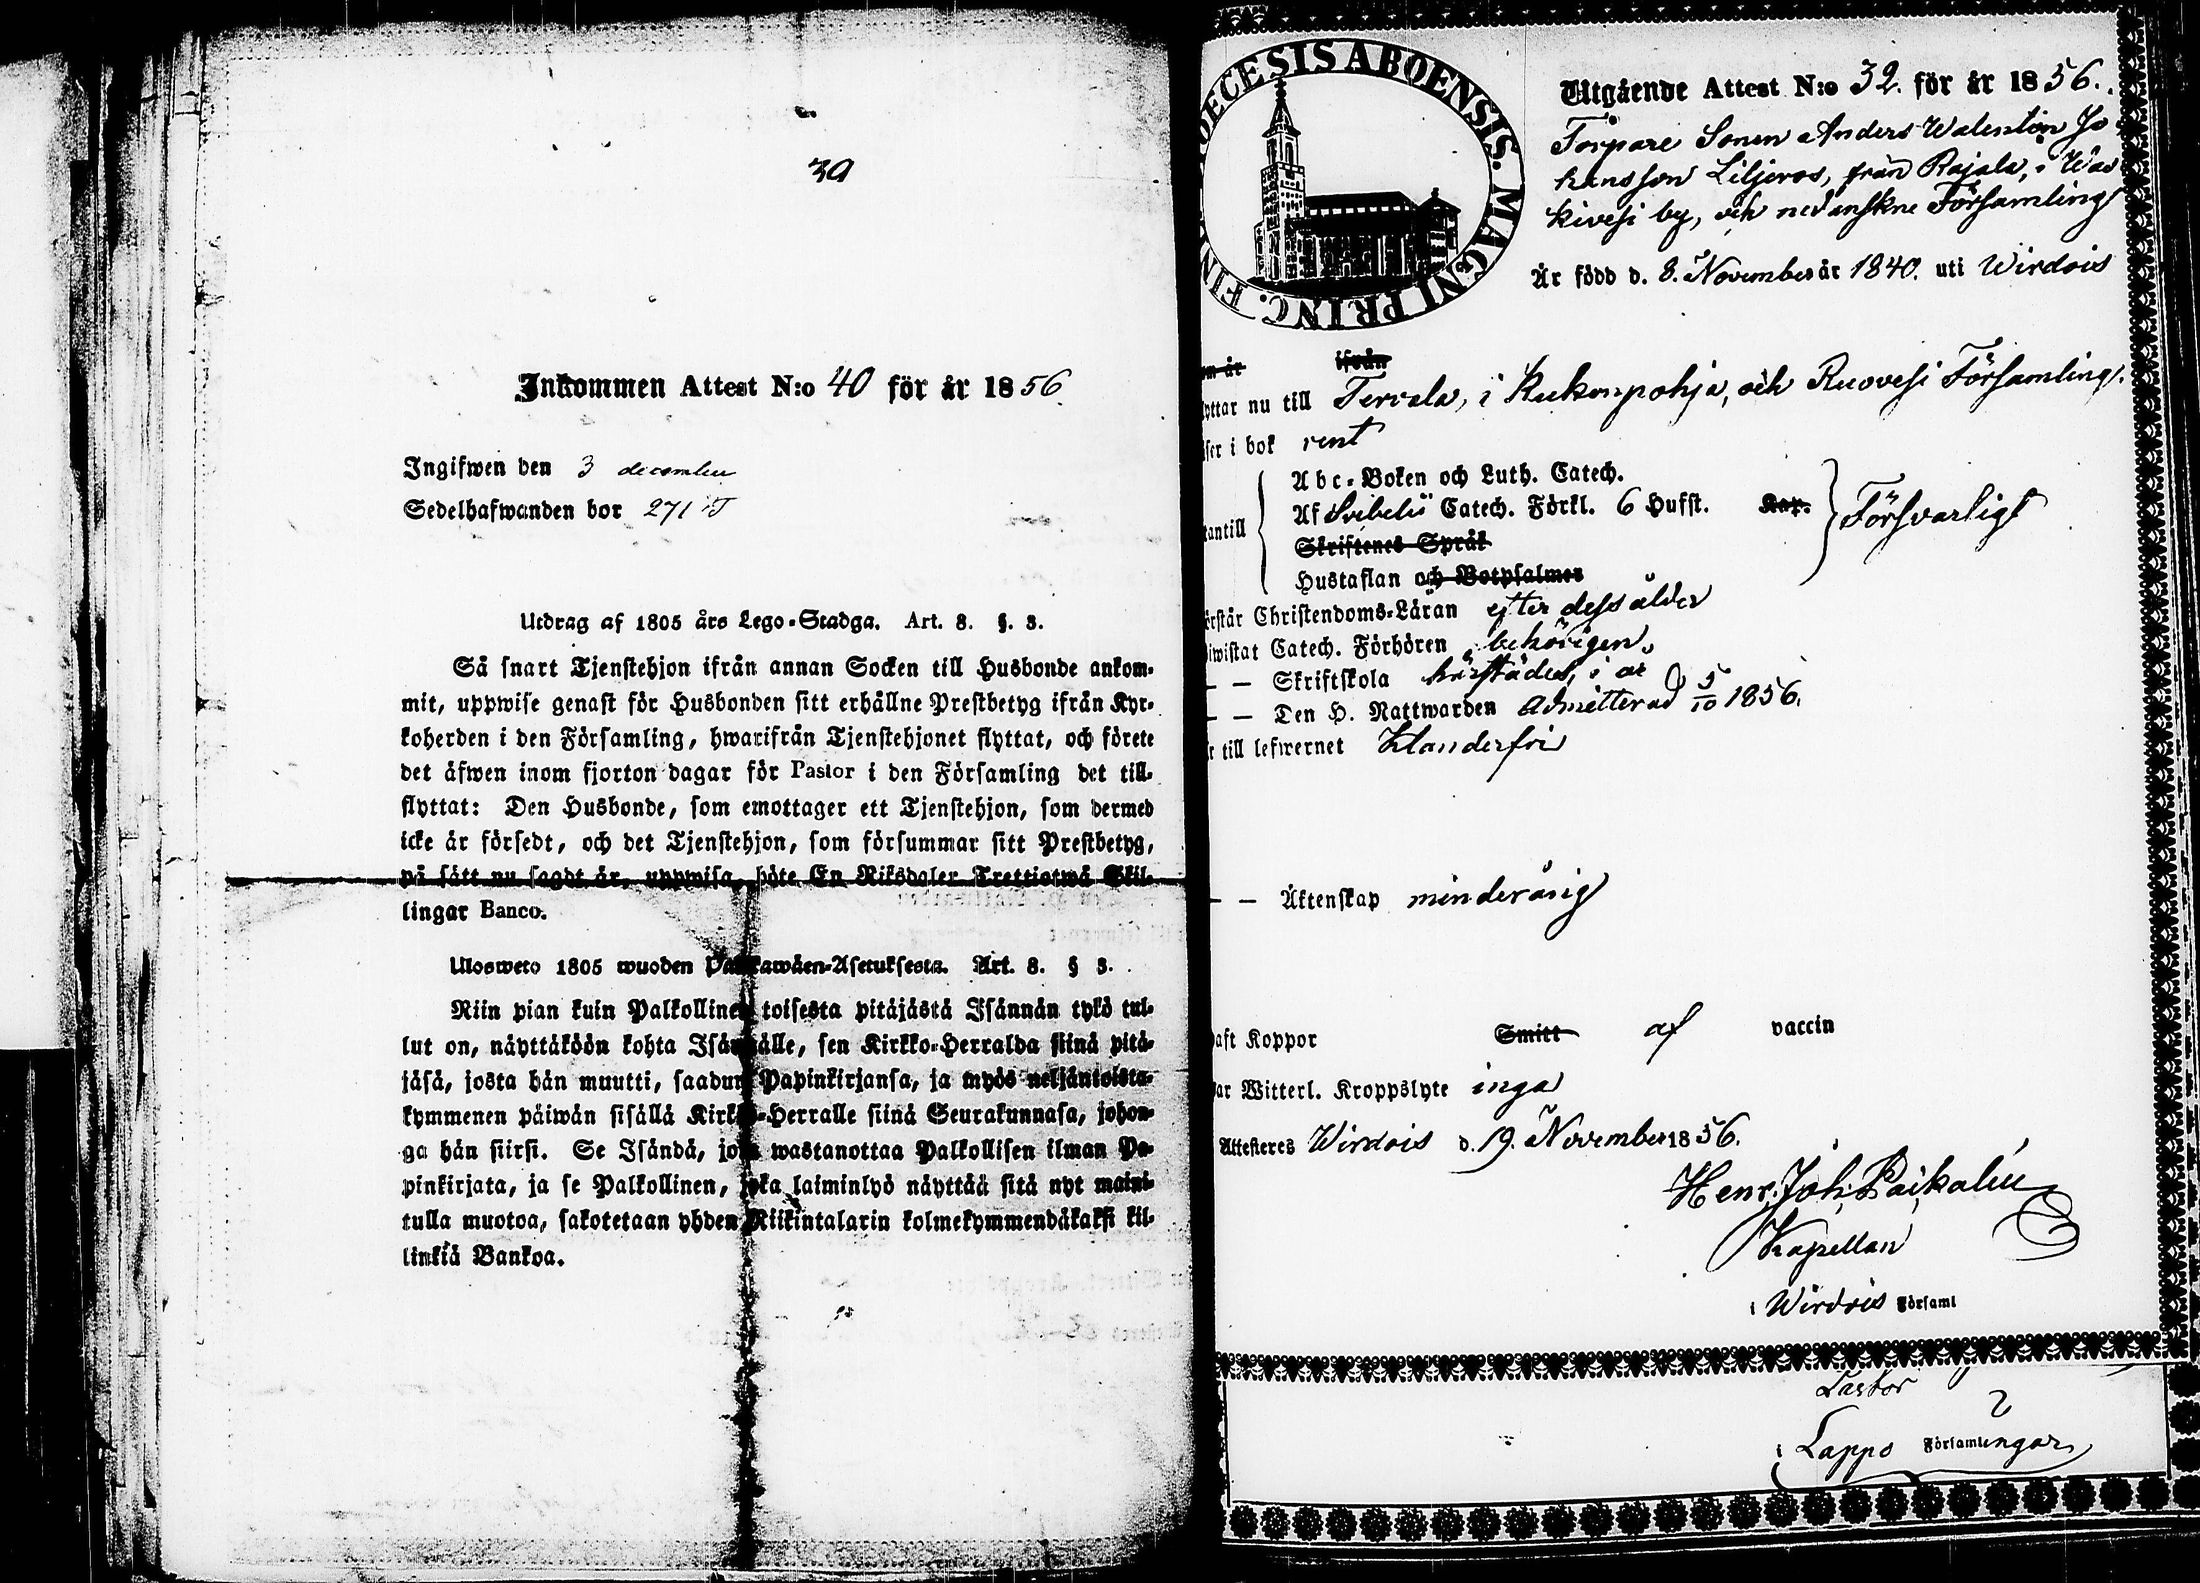 39
Inkommen Attest N:o 40 för år 1856
Ingifwen den 3 december
Sedelhafwanden bor 271 T
Utdrag af 1805 års Lego-Stadga. Art. 8. §. 3.
Så snart Tjenstehjon ifrån annan Socken till Husbonde ankom-
mit, uppwise genast för Husbonden sitt erhållne Prestbetyg ifrån Kyr-
koherden i den Församling, hwarifrån Tjenstehjonet flyttat, och förete
det äfwen inom fjorton dagar för Pastor i den Församling det till-
flyttat: Den Husbonde, som emottager ett Tjenstehjon, som dermed
icke är försedt, och det Tjenstehjon, som försummar sitt Prestbetyg,
på sätt nu sagdt är, uppwisa, böte En Riksdaler Trettiotwå Skil-
lingar Banco.
Ulosweto 1805 wuoden Palkawäen-Asetuksesta. Art. 8. § 3.
Niin pian kuin Palkollinen toisesta pitäjästä Isännän tykö tul-
lut on, näyttäköön kohta Isännälle, sen Kirkko-Herralda siinä pitä-
jäsä, josta hän muutti, saadun Papinkirjansa, ja myös neljäntoista-
kymmenen päiwän sisällä Kirkko-Herralle siinä Seurakunnasa, johon-
ga hän siirsi. Se Isändä, joka wastanottaa Palkollisen ilman Pa-
pinkirjata, ja se Palkollinen, joka laiminlyö näyttää sitä nyt maini-
tulla muotoa, sakotetaan yhden Riikintalarin kolmekymmendäkaksi kil-
linkiä Bankoa.
DIOECESIS ABOENSIS. MAGNI PRINC. FIN
Utgående Attest N:o 32. för år 1856.
Torpare Sonen Anders Walentin Jo
hansson Liljeros, från Rajala, i Was
kivesi by, och nedanskne Församling
Är född d. 8. November år 1840. uti Wirdois
om är ifrån
yttar nu till Tervala, i Ruhonpohja, och Ruovesi Församling.
ser i bok rent
Abc-Boken och Luth. Catech.
Af Svibelii Catech. Förkl. 6 Hufst. Kap. Försvarligt
tantill
Skriftenes Språk
Hustaflan och Botpsalmer
örstår Christendoms-Läran efter dess ålder
iwistat Catech. Förhören behörigen
— — Skriftskola härstädes, i år
— — Den H. Nattwarden admitterad 5/10 1856.
r till lefwernet Klanderfri
— — Äktenskap minderårig
aft Koppor Smitt af vaccin
ar Witterl. Kroppslyte inga
Attesteres Wirdois d. 19. November 1856.
Henr. Joh. Paikalin
Kapellan
i Wirdois Församl
Pastor
i Lappo Församlingar